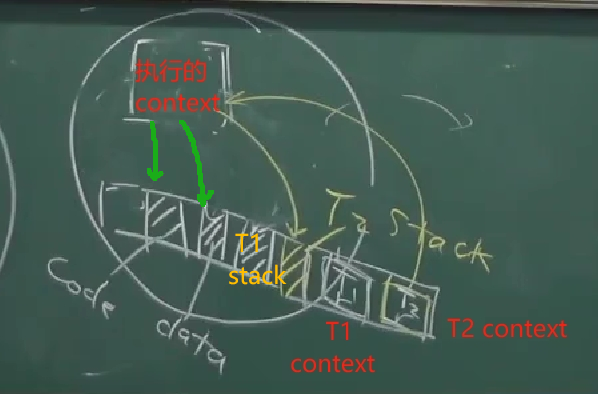 执行的
context
T2 stack
T1
stack
code
data
T1
T2
T1
context
T2 context